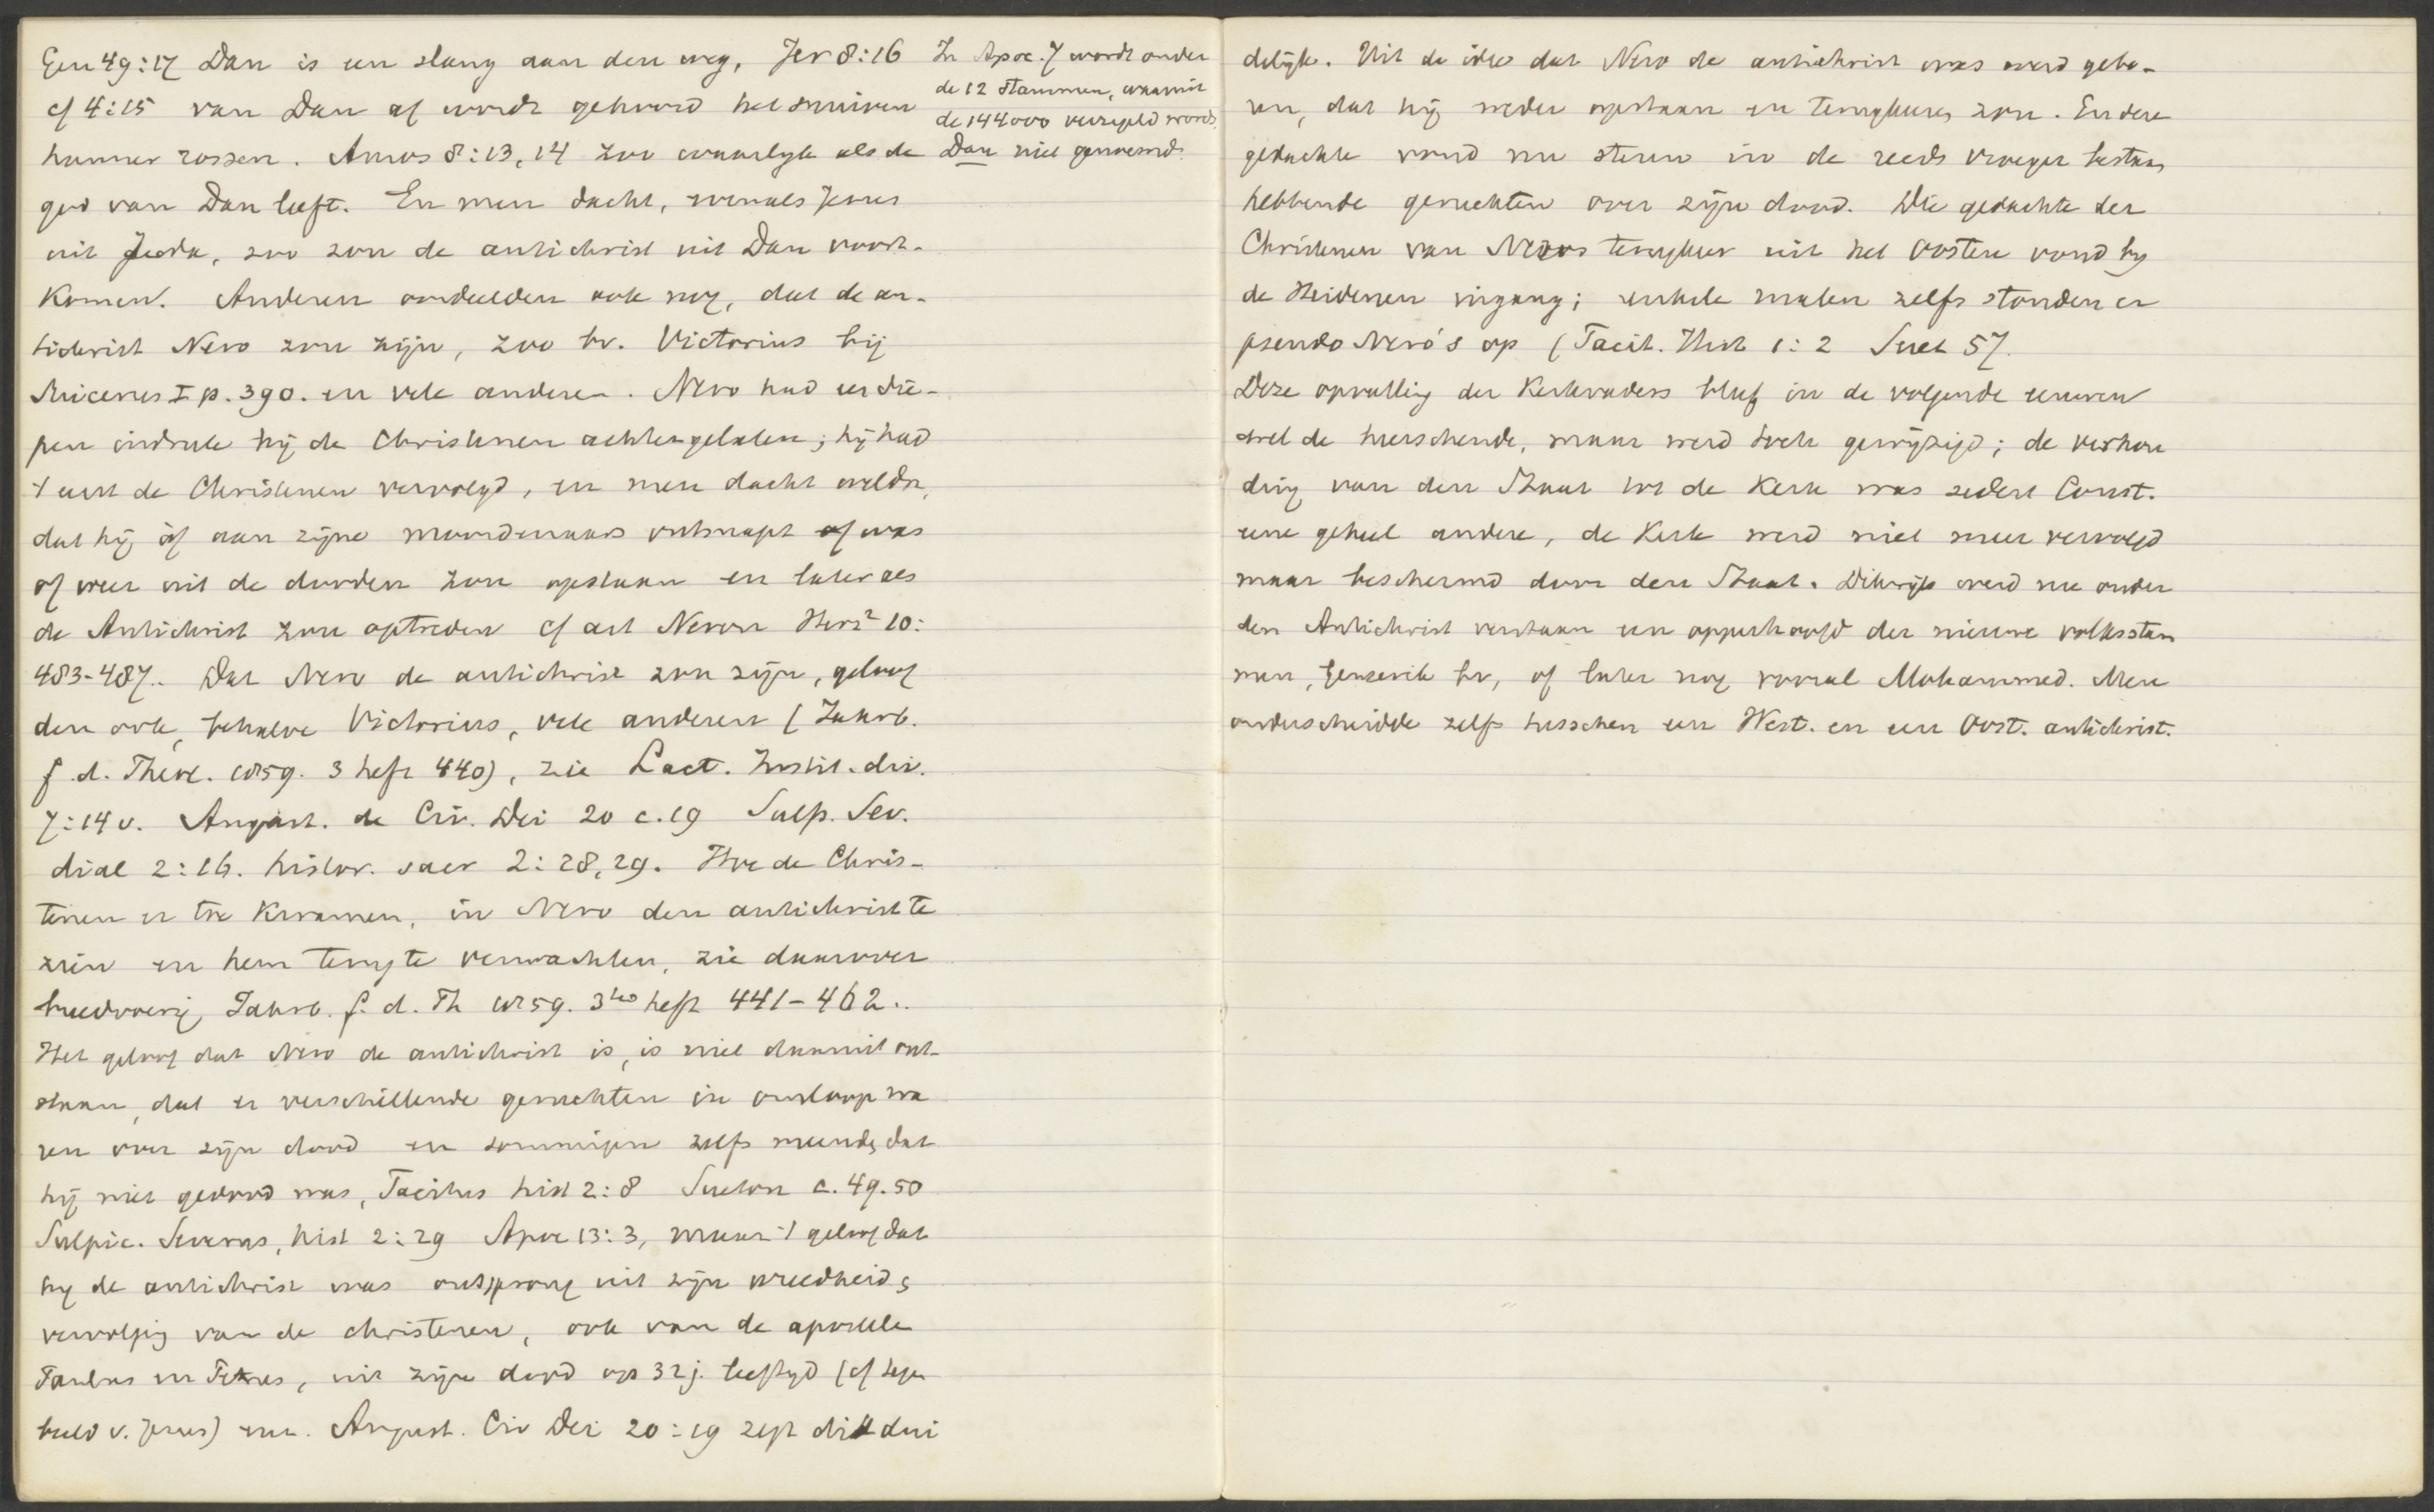 Gen 49:17 Dan is een slang aan den weg, Jer 8:16
cf 4:15 van Dan af wordt gehoord het snuiven
hunner rossen. Amos 8:13,14 zoo waarlijk als de
god van Dan leeft. En men dacht, evenals Jezus
uit Juda, zoo zou de antichrist uit Dan voort-
komen. Anderen oordeelden ook nog, dat de an-
tichrist Nero zou zijn, zoo bv. Victorius bij
Lücke I p. 390. en vele anderen. Nero had een die-
pen indruk bij de Christenen achtergelaten; hij had
't eerst de Christenen vervolgd, en men dacht weldra,
dat hij òf aan zijne moordenaars ontsnapt was
of weer uit de dooden zou opstaan en later als
de Antichrist zou optreden cf art Neron Herz² 10:
483-487. Dat Nero de antichrist zou zijn, geloof
den ook, behalve Victorius, vele anderen (Jahrb.
f. d. Theol. 1859. 3 heft 440), zie Lact. Instit. div.
7:14 v. August. de Civ. Dei 20 c.19 Sulp. Sev.
dial 2:16. histor. sacr 2:28,29. Hoe de Chris-
tenen er toe kwamen, in Nero den antichrist te
zien en hem terug te verwachten, zie daarover
breedvoerig Jahrb. f. d. Th 1859. 3tes heft 441-462..
Het geloof dat Nero de antichrist is, is niet daaruit ont-
staan, dat er verschillende geruchten in omloop wa
ren over zijn dood en sommigen zelfs meenden dat
hij niet gedood was, Tacitus hist 2:8 Sueton c. 49.50
Sulpic. Severus, hist 2:29 Apoc 13:3, maar 't geloof dat
hij de antichrist was ontsprong uit zijn wreedheid,
vervolging van de christenen, ook van de apostelen
Paulus en Petrus, uit zijn dood op 32 j. leeftijd (cf tegen
beeld v. Jezus) enz. August. Civ Dei 20:19 zegt dit dui
In Apoc. 7 wordt onder
de 12 stammen, waaruit
de 144000 verzegeld worden
Dan niet genoemd.
delijk. Uit de idee dat Nero de antichrist was werd gebo-
ren, dat hij weder opstaan en terugkeeren zou. En deze
gedachte vond nu steun in de reeds vroeger bestaan
hebbende geruchten over zijn dood. Die gedachte der
Christenen van Nero's terugkeer uit het Oosten vond bij
de Heidenen ingang; enkele malen zelfs stonden er
pseudo Nero's op (Tacit. Hist 1:2 Suet 57.
Deze opvatting der Kerkvaders bleef in de volgende eeuwen
wel de heerschende, maar werd toch gewijzigd; de verhou
ding van den Staat tot de Kerk was sedert Const.
eene geheel andere, de Kerk werd niet meer vervolgd
maar beschermd door den Staat. Dikwijls werd nu onder
den Antichrist verstaan een opperhoofd der nieuwe volksstam
men, Genserik bv, of later nog vooral Mohammed. Men
onderscheidde zelfs tusschen een West. en een Oost. antichrist.